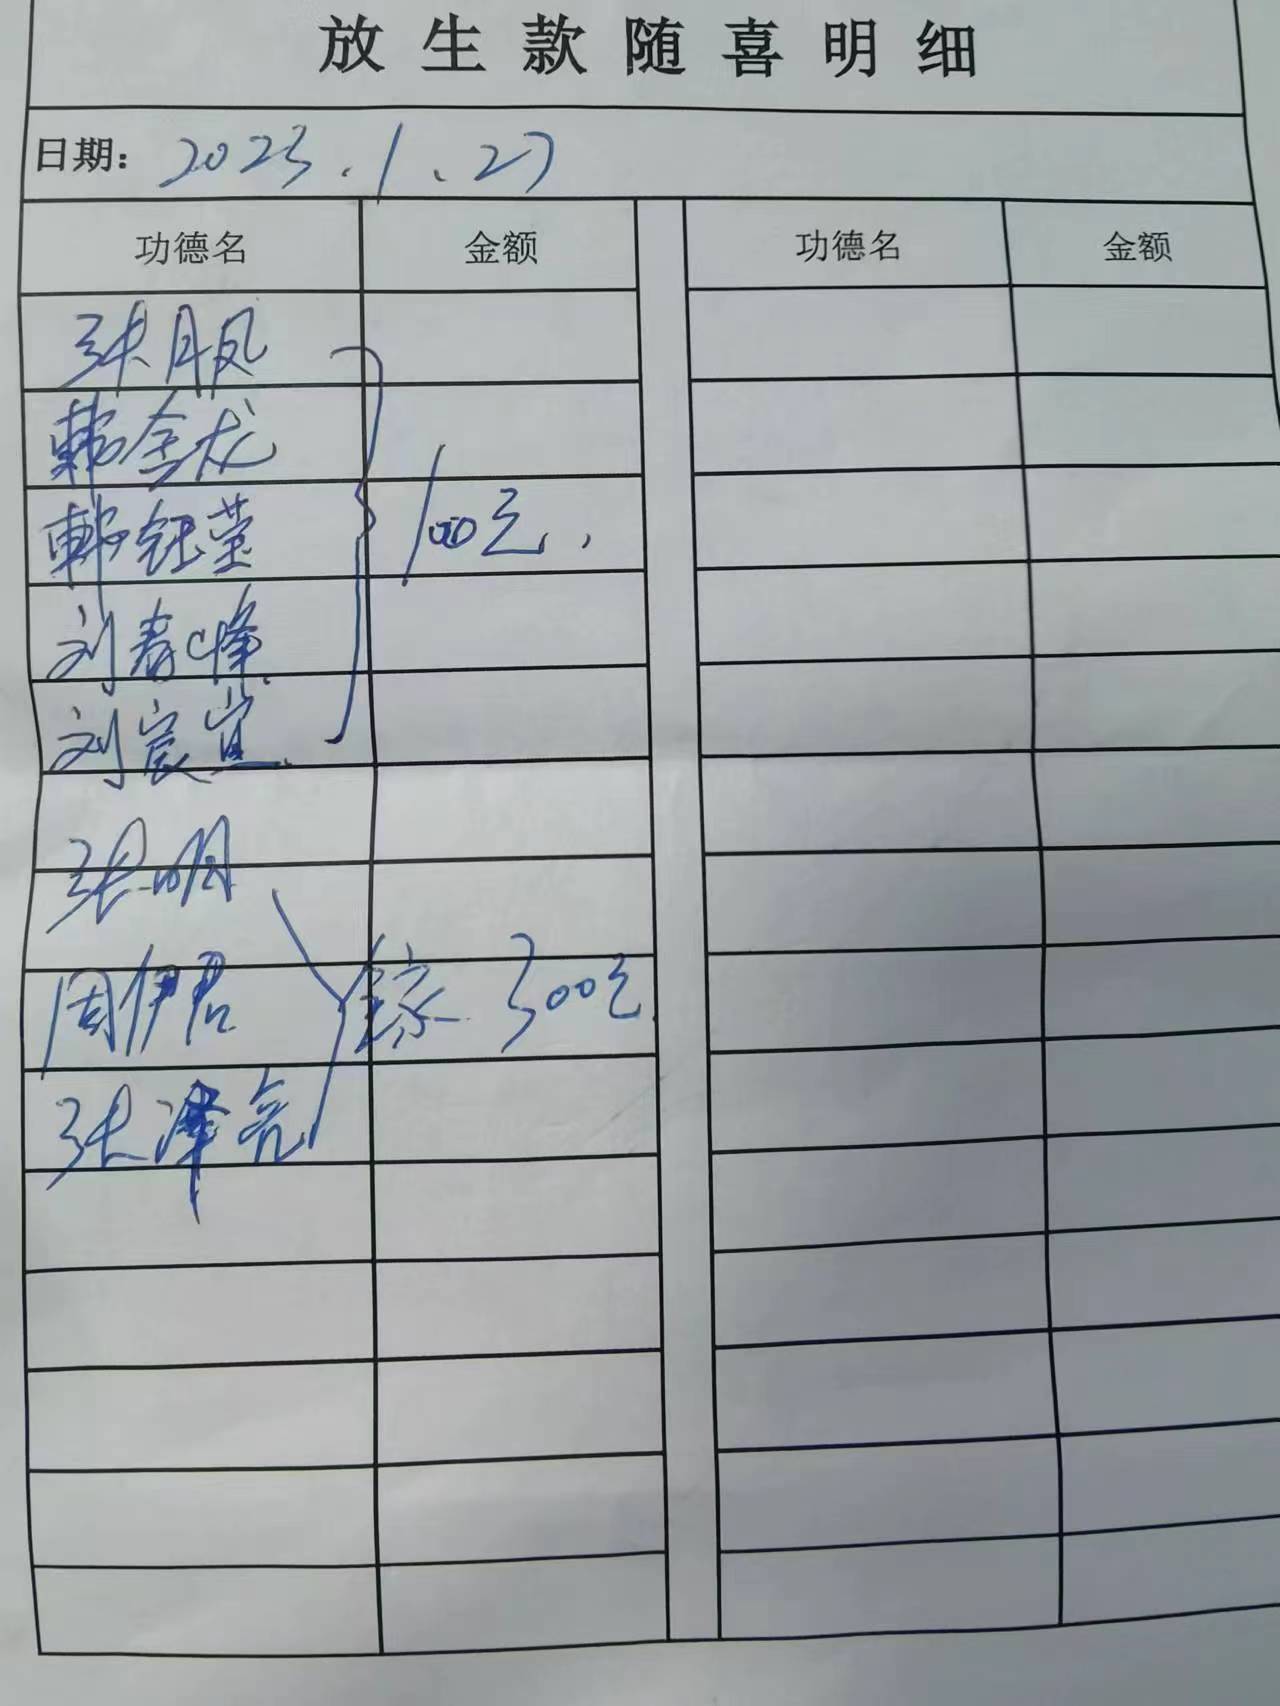 放生款随喜明细
日期: 2023.1.27
功德名 金额 功德名 金额
张月凤
韩金龙
韩钰莹 100元.
刘春峰
刘宸宜
张明
周伊君 全家 300元
张泽亮